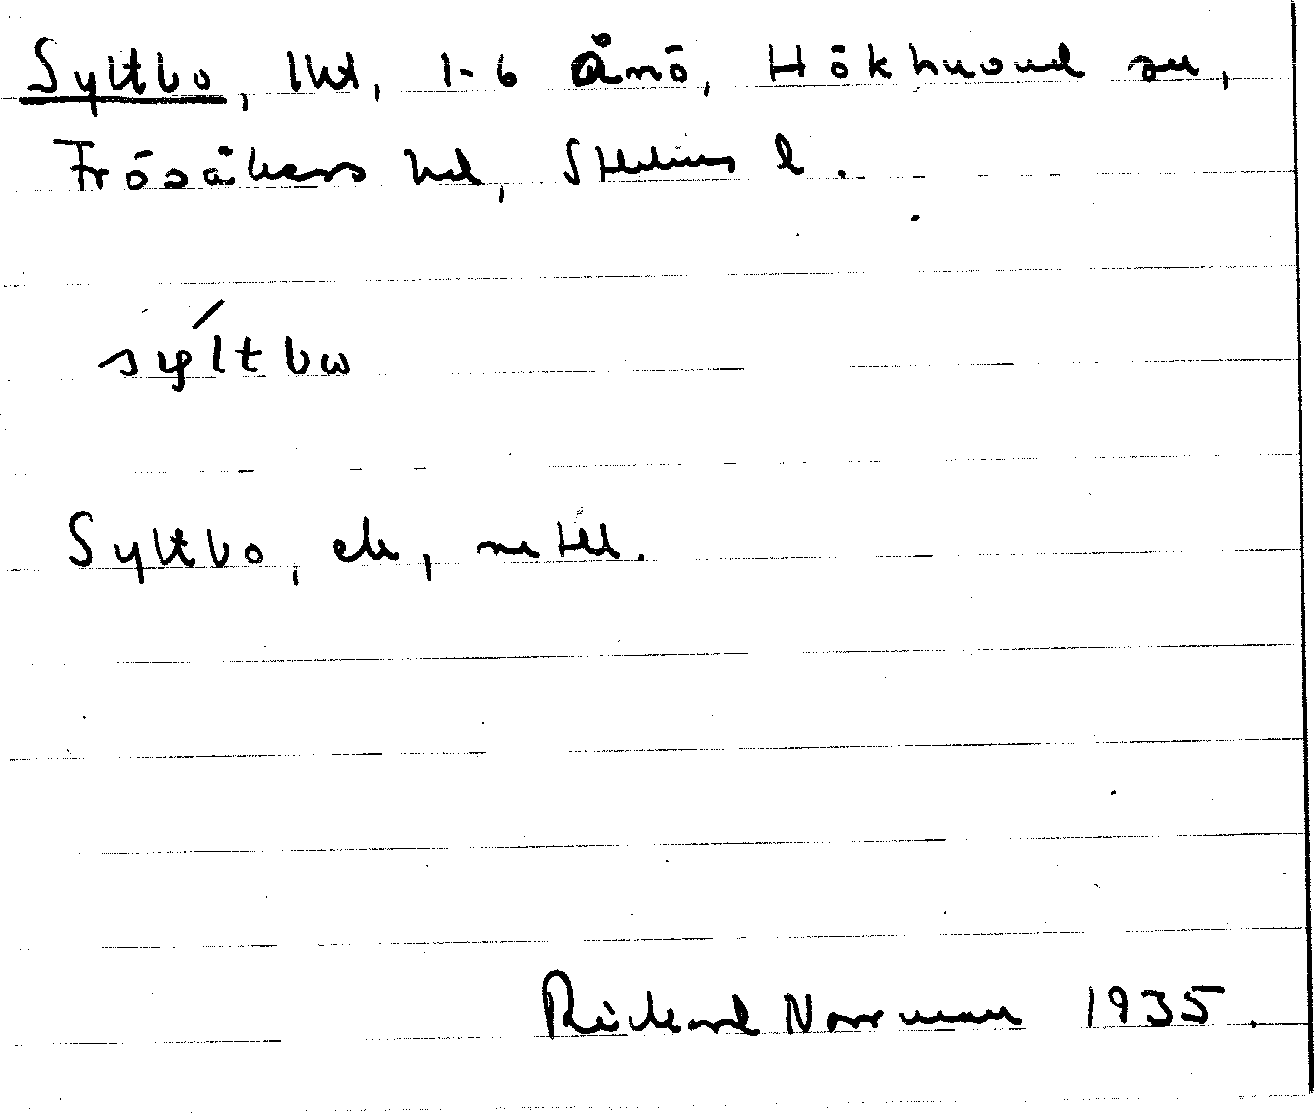 Syltbo, lht, 1-6 Ånö, Hökhuvud sn,
Frösåkers hd, Sthlms l.
sýltbω
Syltbo, ek, mtbl.
Rickard Norrman 1935.